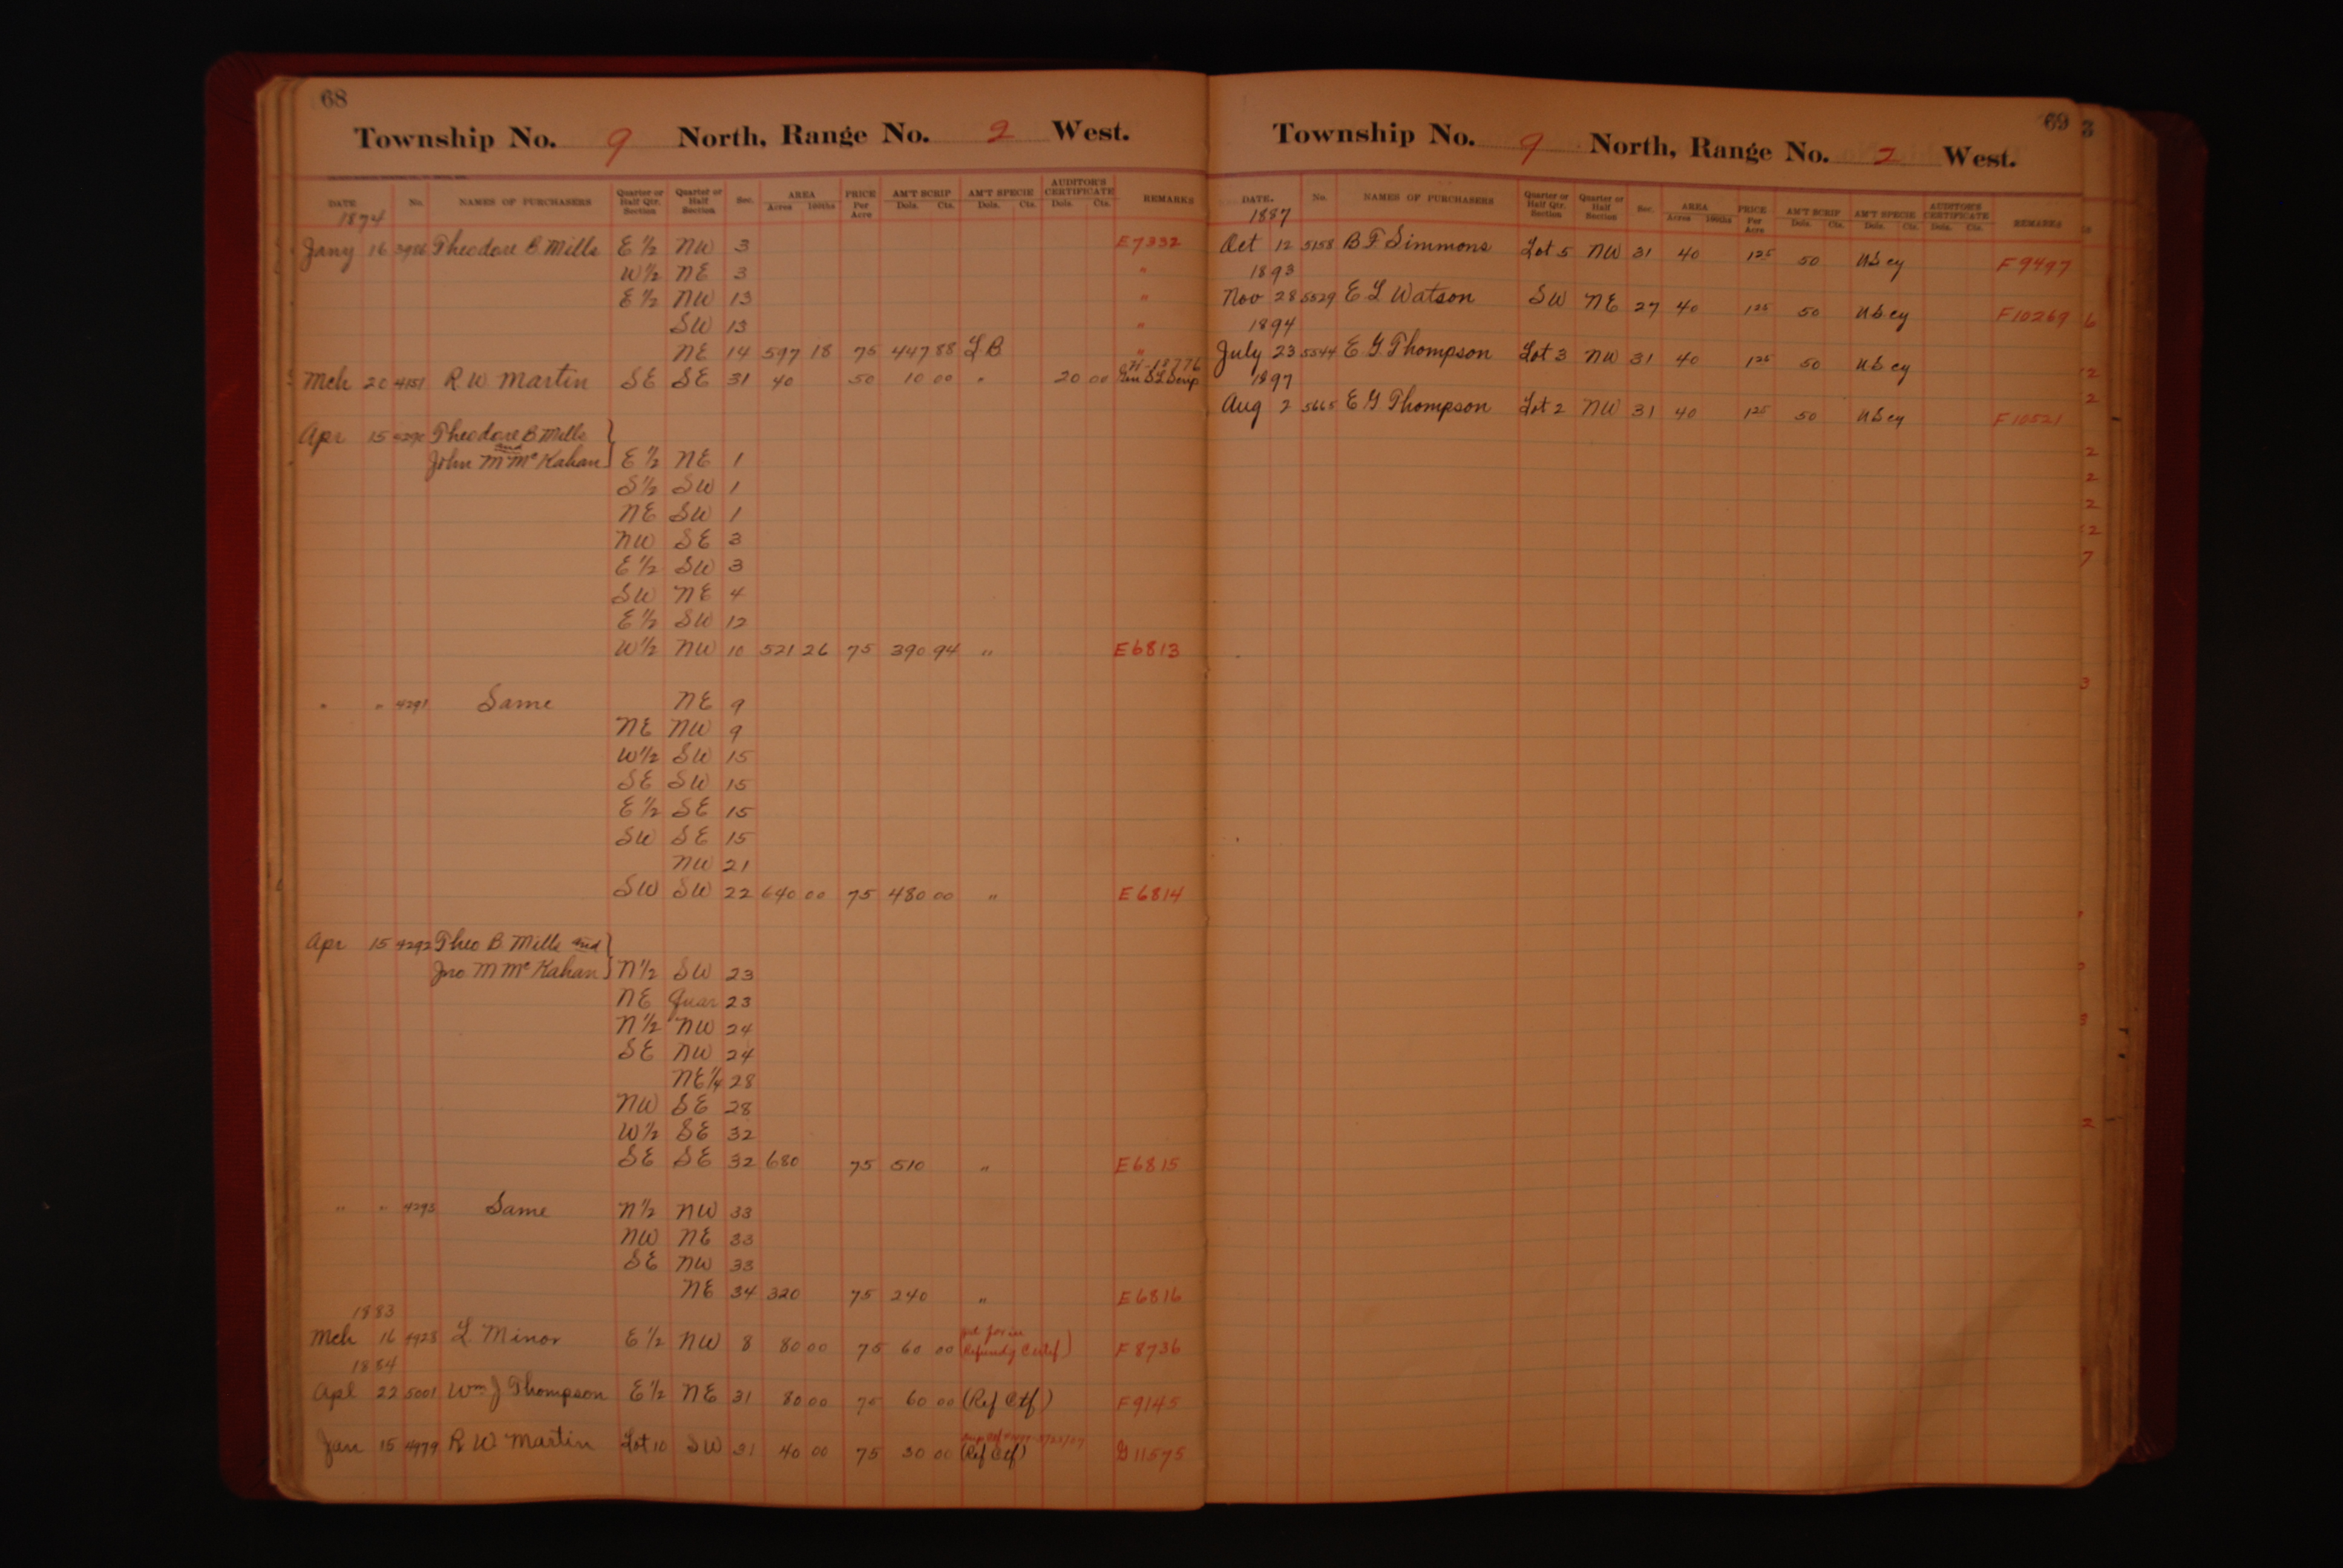 68
Township No. 9 North, Range No. 2 West.
DATE No. NAMES OF PURCHASERS Quarter or Half Qtr. Section Quarter or Half Section Sec. AREA Acres 100ths PRICE Per Acre AM'T SCRIP Dols. Cts. AM'T SPECIE Dols. Cts. AUDITOR'S CERTIFICATE Dols. Cts. REMARKS
1874
Jany 16 3986 Theodore B Mills E ½ NW 3 E7332
W½ NE 3 "
E½ NW 13 "
SW 13 "
NE 14 597 18 75 447 88 L B "
Mch 20 4151 R W Martin SE SE 31 40 50 10 00 " 20 00
Apr 15 4290 Theodore B Mills
and
John M McKahan E ½ NE 1
S½ SW 1
NE SW 1
NW SE 3
E½ SW 3
SW NE 4
E½ SW 12
W½ NW 10 521 26 75 390 94 " E6813
" " 4291 Same NE 9
NE NW 9
W½ SW 15
SE SW 15
E½ SE 15
SW SE 15
NW 21
SW SW 22 640 00 75 480 00 " E6814
Apr 15 4292 Theo B Mills and
Jno M McKahan N½ SW 23
NE Quar 23
N½ NW 24
SE NW 24
NE¼ 28
NW SE 28
W½ SE 32
SE SE 32 680 75 510 " E6815
" " 4293 Same N½ NW 33
NW NE 33
SE NW 33
NE 34 320 75 240 " E6816
1883
Mch 16 4928 L Minor E½ NW 8 80 00 75 60 00 Refundg Certf) F8736
1884
Apl 22 5001 Wm J Thompson E½ NE 31 80 00 75 60 00 (Ref Ctf) F9145
Jan 15 4979 R W Martin Lot 10 SW 31 40 00 75 30 00 (Ref Ctf) G11575
69
Township No. 9 North, Range No. 2 West.
DATE. No. NAMES OF PURCHASERS Quarter or Half Qtr. Section Quarter or Half Section Sec. AREA Acres 100ths PRICE Per Acre AM'T SCRIP Dols. Cts. AM'T SPECIE Dols. Cts. AUDITOR'S CERTIFICATE Dols. Cts. REMARKS
1887
Oct 12 5158 B F Simmons Lot 5 NW 31 40 1 25 50 US cy F9497
1893
Nov 28 5529 E L Watson SW NE 27 40 1 25 50 US cy F10269
1894
July 23 5544 E G Thompson Lot 3 NW 31 40 1 25 50 US cy
1897
Aug 2 5665 E G Thompson Lot 2 NW 31 40 1 25 50 US cy F10521